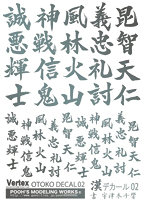 毘智天仁
義忠礼討
風林火山
神戦信鬼
誠悪輝士
毘智天仁
義忠礼討
風林火山
神戦信鬼
誠悪輝士
Vertex OTOKO DECAL 02
POOH'S MODELING WORKS
漢デカール02